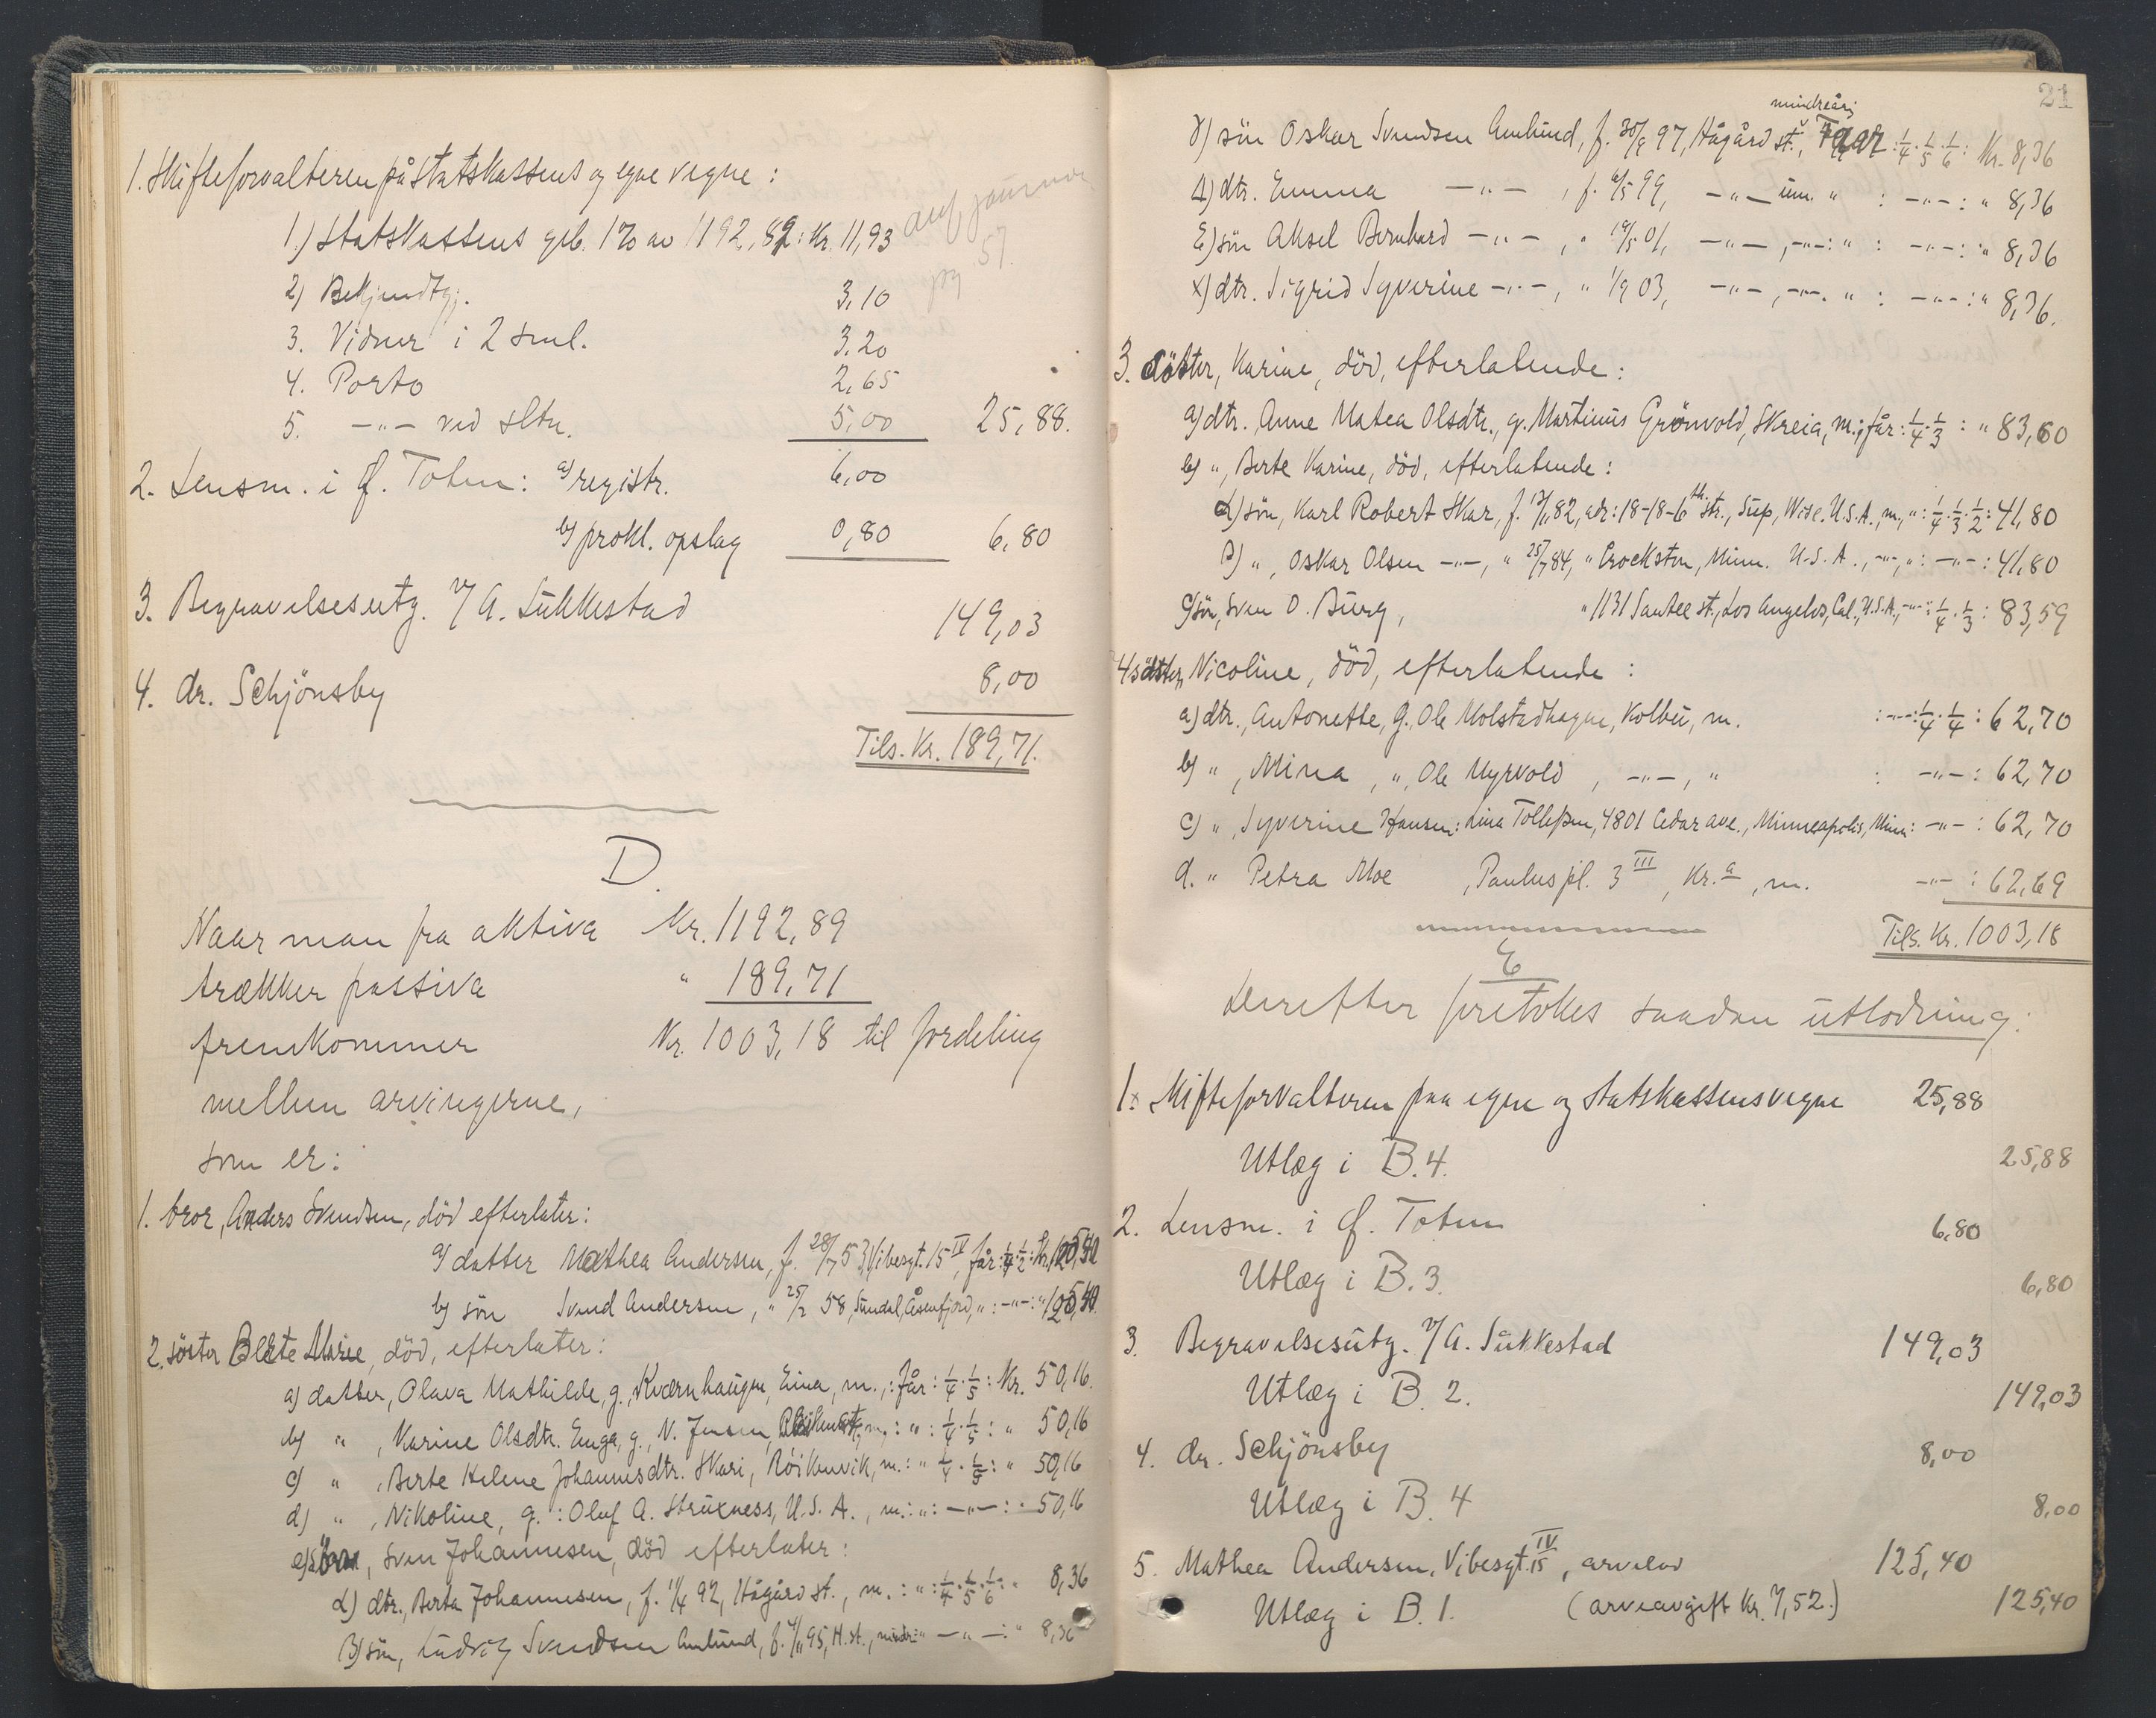 1. Skifteforvalteren på Statskassens og egne vegne:
1.) Statskassens geb. 1% av 1192,89: Kr. 11,93
2) Bekjendtg. 3,10
3. Vidner i 2 saml. 3,20
4. Porto 2,65
5. -"- ved sltn. 5,00 25,88.
2. Lensm. i Ø. Toten: a) registr. 6,00
b) prokl. opslag 0,80 6,80
3. Begravelsesutg. v/ A. Sukkestad 149,03
4. dr. Schjönsby 8,00
Tils. Kr. 189,71.
D.
Naar man fra aktiva Kr. 1192,89
trækker passiva " 189,71
fremkommer Kr. 1003,18 til fordeling
mellem arvingerne,
som er:
1. bror, Anders Svendsen, död efterlater:
a) datter Mathea Andersen, f. 28/7 53, Vibesgt. 15 IV, får: 1/4·1/2: Kr. 125,40
b) sön Svend Andersen, " 25/2 58, Sundal, Åsenfjord, ": -"-: " 125,40.
2. söster Berte Marie, död, efterlater:
a) datter, Olava Mathilde, g. Kværnhaugen, Eina, m.,: får: 1/4·1/5: Kr. 50,16.
b) " , Karine Olsdtr. Enga, g. N. Jensen, m,: ": 1/4·1/5: " 50,16
c) " , Berte Helene Johannesdtr. Skari, Röikenvik, m.: " 1/4·1/5: " 50,16
d) " , Nikoline, g.: Oluf A. Struxness, U.S.A., m.: ": -"-: " 50,16
e) sön, Sven Johannesen, död efterlater:
α) dtr., Berta Johannesen, f. 11/4 92, Hågård st., m.: ": 1/4·1/5·1/6: " 8,36
β) sön, Ludvig Svendsen Amlund, f. 4/11 95, H. st., mindr: " -"-: " 8,36
21
mindreårig
γ) sön Oskar Svendsen Amlund, f. 30/8 97, Hågård st., får: 1/4·1/5·1/6: Kr. 8,36
Δ) dtr. Emma -"-, f. 6/5 99, -"- um. " : -"-: " 8,36
ε) sön Aksel Bernhard -"-, " 19/5 01, -"-, -"-: " : -"-: " 8,36
x) dtr. Sigrid Syverine -"-, " 1/9 03, -"-, -"-. " : -"-: " 8,36.
3. söster, Karine, död, efterlatende:
a) dtr. Anne Matea Olsdtr., g. Martinus Grönvold, Skreia, m.; får: 1/4·1/3: " 83,60
b) ", Berte Karine, död, efterlatende:
α) sön, Karl Robert Skar, f. 13/11 82, adr: 18-18-6th str., Sup, Wisc. U.S.A., m., ": 1/4·1/3·1/2: 41,80
β) ", Oskar Olsen -"-, " 25/7 84, " Crockston, Minn. U.S.A., -"-, ": -"-: 41,80
c) sön, Sven O. Burg, " 1131 Santee st., Los Angelos, Cal., U.S.A., -"-: 1/4·1/3: 83,59
4 söster, Nicoline, död, efterlatende:
a) dtr., Antonette, g. Ole Molstadhagen, Kolbu, m. : -"-: 1/4·1/4: 62,70
b) ", Mina, ", Ole Myrvold, -"-, " : -"-: 62,70
c) ", Syverine Hansen: Lina Tollefsen, 4801 Cedar ave., Minneapolis, Minn: -"-: 62,70
d. " Petra Moe, Paulus pl. 3 III, Kr.a, m. -"-: 62,69
Tils. Kr. 1003,18
E
Derefter foretokes saadan utlodning:
1. Skifteforvalteren paa egne og statskassens vegne 25,88
Utlæg i B.4. 25,88
2. Lensm. i Ø. Toten 6,80
Utlæg i B.3. 6,80
3. Begravelsesutg. v/ A. Sukkestad 149,03
Utlæg i B.2. 149,03
4. dr. Schjönsby 8,00
Utlæg i B.4 8,00
5. Mathea Andersen, Vibesgt. 15 IV, arvelod 125,40
Utlæg i B.1. (arveavgift Kr. 7,52.) 125,40